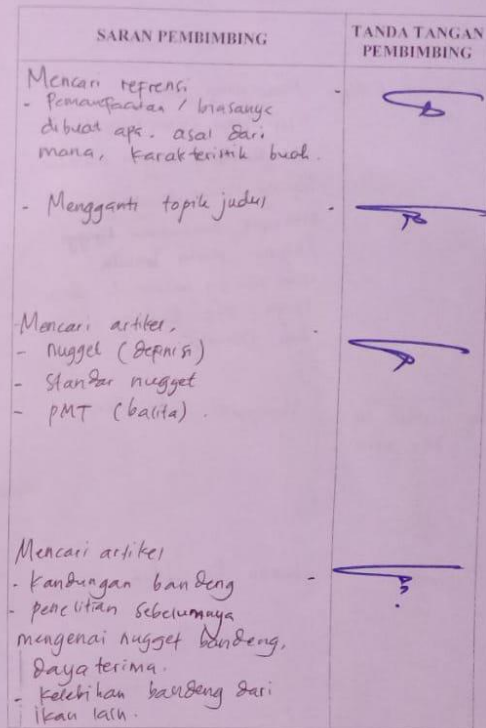 SARAN PEMBIMBING
TANDA TANGAN
PEMBIMBING
Mencari refrensi
- Pemanfaatan / biasanya
dibuat apa. asal dari
mana, karakteristik buah.
- Mengganti topik judul
Mencari artikel,
- nugget (definisi)
- Standar nugget
- PMT (balita).
Mencari artikel
- kandungan bandeng
- penelitian sebelumnya
mengenai nugget bandeng,
daya terima.
- kelebihan bandeng dari
ikan lain.